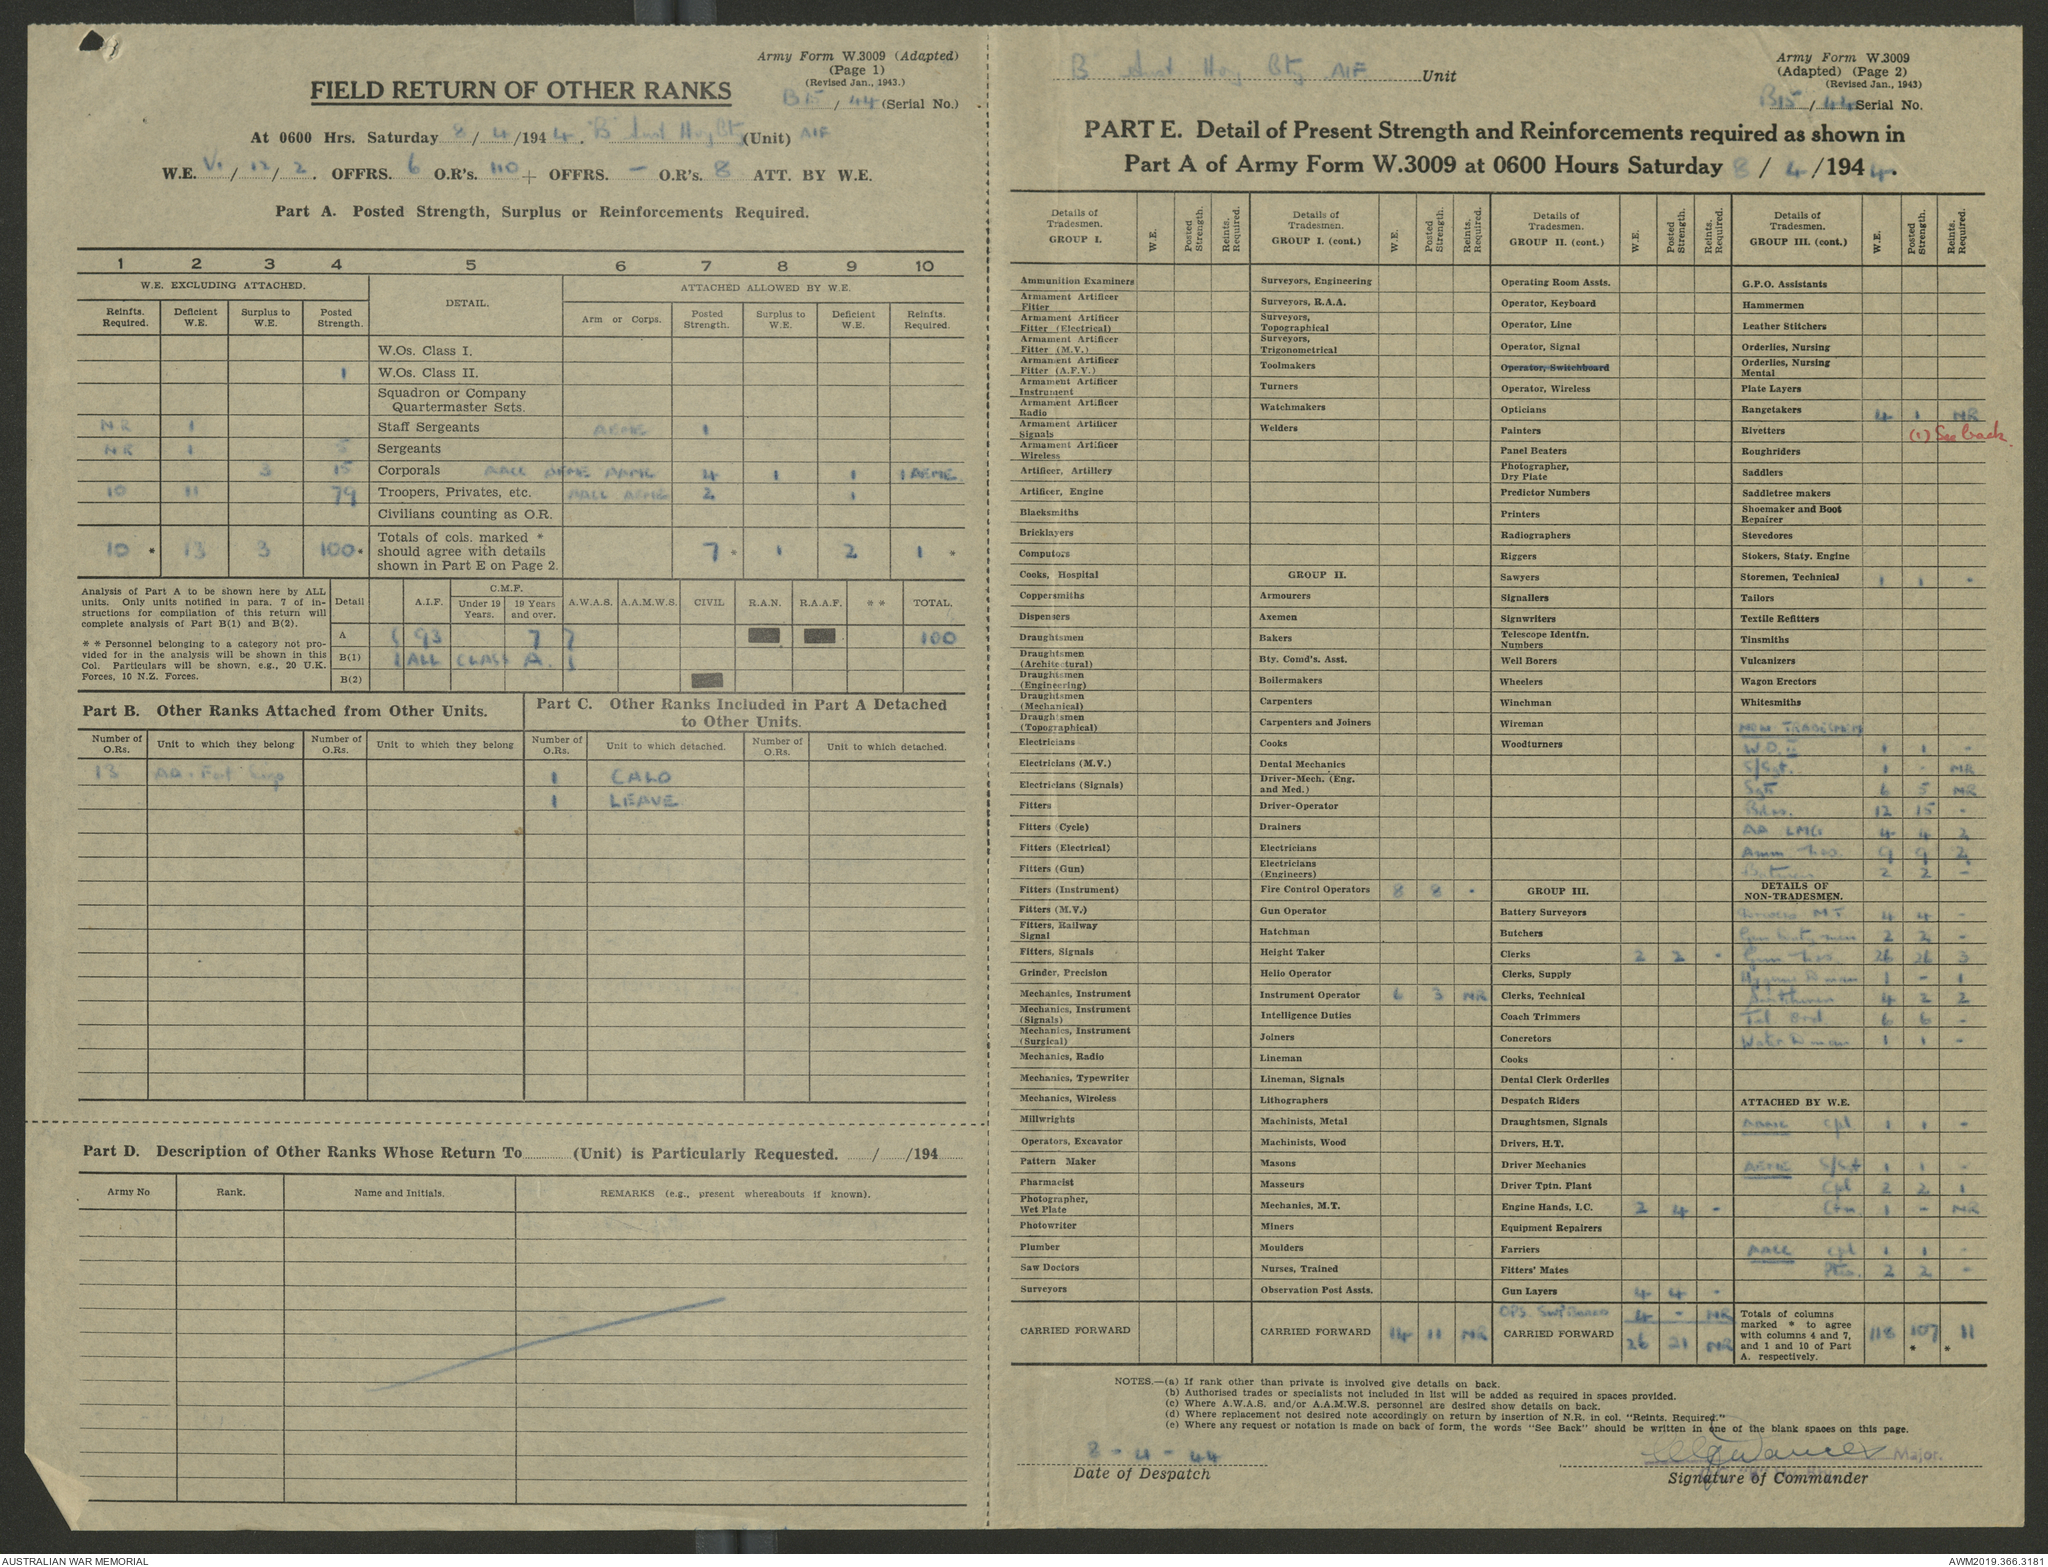 Army Form W.3009 (Adapted)
(Page 1)
(Revised Jan., 1943.)
FIELD RETURN OF OTHER RANKS
B15 / 44 (Serial No.)
At 0600 Hrs. Saturday 8 / 4 /1944. "B" Aust Hvy Bty (Unit) AIF
W.E. V. / 12 / 2. OFFRS. 6 O.R's. 110 + OFFRS. - O.R's. 8 ATT. BY W.E.
Part A. Posted Strength, Surplus or Reinforcements Required.
1 2 3 4 5 6 7 8 9 10
W.E. EXCLUDING ATTACHED. DETAIL. ATTACHED ALLOWED BY W.E.
Reinfts. Required. Deficient W.E. Surplus to W.E. Posted Strength. Arm or Corps. Posted Strength. Surplus to W.E. Deficient W.E. Reinfts. Required.
W.Os. Class I.
1 W.Os. Class II.
Squadron or Company
Quartermaster Sgts.
NR 1 Staff Sergeants AEME 1
NR 1 5 Sergeants
3 15 Corporals AALC AEME AAMC 4 1 1 1 AEME
10 11 79 Troopers, Privates, etc. AALC AEME 2 1
Civilians counting as O.R.
10 * 13 3 100 * Totals of cols. marked * should agree with details shown in Part E on Page 2. 7 * 1 2 1 *
Analysis of Part A to be shown here by ALL units. Only units notified in para. 7 of instructions for compilation of this return will complete analysis of Part B(1) and B(2).
* * Personnel belonging to a category not provided for in the analysis will be shown in this Col. Particulars will be shown, e.g., 20 U.K. Forces, 10 N.Z. Forces.
Detail A.I.F. C.M.F. Under 19 Years. 19 Years and over. A.W.A.S. A.A.M.W.S. CIVIL R.A.N. R.A.A.F. * * TOTAL.
A 93 7 100
B(1) ALL CLASS A.
B(2)
Part B. Other Ranks Attached from Other Units.
Part C. Other Ranks Included in Part A Detached to Other Units.
Number of O.Rs. Unit to which they belong Number of O.Rs. Unit to which they belong Number of O.Rs. Unit to which detached. Number of O.Rs. Unit to which detached.
13 AA. Fort 1 CALO
1 LEAVE
Part D. Description of Other Ranks Whose Return To (Unit) is Particularly Requested. / /194
Army No Rank. Name and Initials. REMARKS (e.g., present whereabouts if known).
B Aust Hvy Bty AIF Unit
Army Form W.3009
(Adapted) (Page 2)
(Revised Jan., 1943)
B15 / 44 Serial No.
PART E. Detail of Present Strength and Reinforcements required as shown in
Part A of Army Form W.3009 at 0600 Hours Saturday 8 / 4 /1944.
Details of Tradesmen. GROUP I. W.E. Posted Strength. Reints. Required.
Ammunition Examiners
Armament Artificer Fitter
Armament Artificer Fitter (Electrical)
Armament Artificer Fitter (M.V.)
Armament Artificer Fitter (A.F.V.)
Armament Artificer Instrument
Armament Artificer Radio
Armament Artificer Signals
Armament Artificer Wireless
Artificer, Artillery
Artificer, Engine
Blacksmiths
Bricklayers
Computors
Cooks, Hospital
Coppersmiths
Dispensers
Draughtsmen
Draughtsmen (Architectural)
Draughtsmen (Engineering)
Draughtsmen (Mechanical)
Draughtsmen (Topographical)
Electricians
Electricians (M.V.)
Electricians (Signals)
Fitters
Fitters (Cycle)
Fitters (Electrical)
Fitters (Gun)
Fitters (Instrument)
Fitters (M.V.)
Fitters, Railway Signal
Fitters, Signals
Grinder, Precision
Mechanics, Instrument
Mechanics, Instrument (Signals)
Mechanics, Instrument (Surgical)
Mechanics, Radio
Mechanics, Typewriter
Mechanics, Wireless
Millwrights
Operators, Excavator
Pattern Maker
Pharmacist
Photographer, Wet Plate
Photowriter
Plumber
Saw Doctors
Surveyors
CARRIED FORWARD
Details of Tradesmen. GROUP I. (cont.) W.E. Posted Strength. Reints. Required.
Surveyors, Engineering
Surveyors, R.A.A.
Surveyors, Topographical
Surveyors, Trigonometrical
Toolmakers
Turners
Watchmakers
Welders
GROUP II.
Armourers
Axemen
Bakers
Bty. Comd's. Asst.
Boilermakers
Carpenters
Carpenters and Joiners
Cooks
Dental Mechanics
Driver-Mech. (Eng. and Med.)
Driver-Operator
Drainers
Electricians
Electricians (Engineers)
Fire Control Operators 8 8 -
Gun Operator
Hatchman
Height Taker
Helio Operator
Instrument Operator 6 3 NR
Intelligence Duties
Joiners
Lineman
Lineman, Signals
Lithographers
Machinists, Metal
Machinists, Wood
Masons
Masseurs
Mechanics, M.T.
Miners
Moulders
Nurses, Trained
Observation Post Assts.
CARRIED FORWARD 14 11 NR
Details of Tradesmen. GROUP II. (cont.) W.E. Posted Strength. Reints. Required.
Operating Room Assts.
Operator, Keyboard
Operator, Line
Operator, Signal
Operator, Switchboard
Operator, Wireless
Opticians
Painters
Panel Beaters
Photographer, Dry Plate
Predictor Numbers
Printers
Radiographers
Riggers
Sawyers
Signallers
Signwriters
Telescope Identfn. Numbers
Well Borers
Wheelers
Winchman
Wireman
Woodturners
GROUP III.
Battery Surveyors
Butchers
Clerks 2 2 -
Clerks, Supply
Clerks, Technical
Coach Trimmers
Concretors
Cooks
Dental Clerk Orderlies
Despatch Riders
Draughtsmen, Signals
Drivers, H.T.
Driver Mechanics
Driver Tptn. Plant
Engine Hands, I.C. 2 4 -
Equipment Repairers
Farriers
Fitters' Mates
Gun Layers 4 4 -
OPS. Swt Board 4 - NR
CARRIED FORWARD 26 21 NR
Details of Tradesmen. GROUP III. (cont.) W.E. Posted Strength. Reints. Required.
G.P.O. Assistants
Hammermen
Leather Stitchers
Orderlies, Nursing
Orderlies, Nursing Mental
Plate Layers
Rangetakers 4 1 NR
Rivetters (1) See back.
Roughriders
Saddlers
Saddletree makers
Shoemaker and Boot Repairer
Stevedores
Stokers, Staty. Engine
Storemen, Technical 1 1 -
Tailors
Textile Refitters
Tinsmiths
Vulcanizers
Wagon Erectors
Whitesmiths
NON TRADESMEN
W.O. II 1 1 -
S/Sgt. 1 - NR
Sgts 6 5 NR
Bdrs. 12 15 -
AA LMG 4 4 2
Amm Nos. 9 9 2
Batmen 2 2 -
DETAILS OF NON-TRADESMEN.
Drivers M.T. 4 4 -
2 2 -
Gun Nos. 26 26 3
Hygiene D man 1 - 1
4 2 2
Tel. 6 6 -
Water D man 1 1 -
ATTACHED BY W.E.
AAMC Cpl 1 1 -
AEME S/Sgt 1 1 -
Cpl 2 2 1
Cfn. 1 - NR
AALC Cpl 1 1 -
Ptes. 2 2 -
Totals of columns marked * to agree with columns 4 and 7, and 1 and 10 of Part A. respectively. 118 107 * 11 *
NOTES.—(a) If rank other than private is involved give details on back.
(b) Authorised trades or specialists not included in list will be added as required in spaces provided.
(c) Where A.W.A.S. and/or A.A.M.W.S. personnel are desired show details on back.
(d) Where replacement not desired note accordingly on return by insertion of N.R. in col. "Reints. Required."
(e) Where any request or notation is made on back of form, the words "See Back" should be written in one of the blank spaces on this page.
8 - 4 - 44
Date of Despatch
Major.
Signature of Commander
AUSTRALIAN WAR MEMORIAL
AWM2019.366.3181